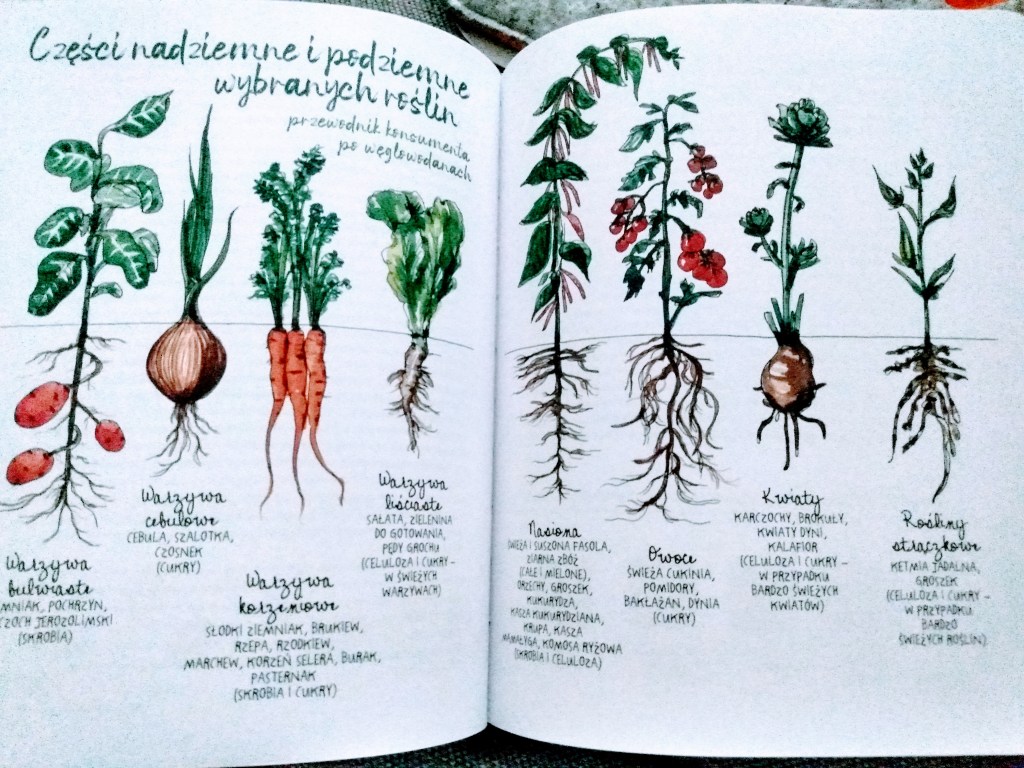 Części nadziemne i podziemne
wybranych roślin
przewodnik konsumenta
po węglowodanach
Warzywa
bulwiaste
MNIAK, POCHRZYN,
CZOCH JEROZOLIMSKI
(SKROBIA)
Warzywa
cebulowe
CEBULA, SZALOTKA,
CZOSNEK
(CUKRY)
Warzywa
korzeniowe
SŁODKI ZIEMNIAK, BRUKIEW,
RZEPA, RZODKIEW,
MARCHEW, KORZEŃ SELERA, BURAK,
PASTERNAK
(SKROBIA I CUKRY)
Warzywa
liściaste
SAŁATA, ZIELENINA
DO GOTOWANIA,
PĘDY GROCHU
(CELULOZA I CUKRY –
W ŚWIEŻYCH
WARZYWACH)
Nasiona
ŚWIEŻA I SUSZONA FASOLA,
ZIARNA ZBÓŻ
(CAŁE I MIELONE),
ORZECHY, GROSZEK,
KUKURYDZA,
KASZA KUKURYDZIANA,
KRUPA, KASZA
MAMAŁYGA, KOMOSA RYŻOWA
(SKROBIA I CELULOZA)
Owoce
ŚWIEŻA CUKINIA,
POMIDORY,
BAKŁAŻAN, DYNIA
(CUKRY)
Kwiaty
KARCZOCHY, BROKUŁY,
KWIATY DYNI,
KALAFIOR
(CELULOZA I CUKRY –
W PRZYPADKU
BARDZO ŚWIEŻYCH
KWIATÓW)
Rośliny
strączkowe
KETMIA JADALNA,
GROSZEK
(CELULOZA I CUKRY –
W PRZYPADKU
BARDZO
ŚWIEŻYCH ROŚLIN)